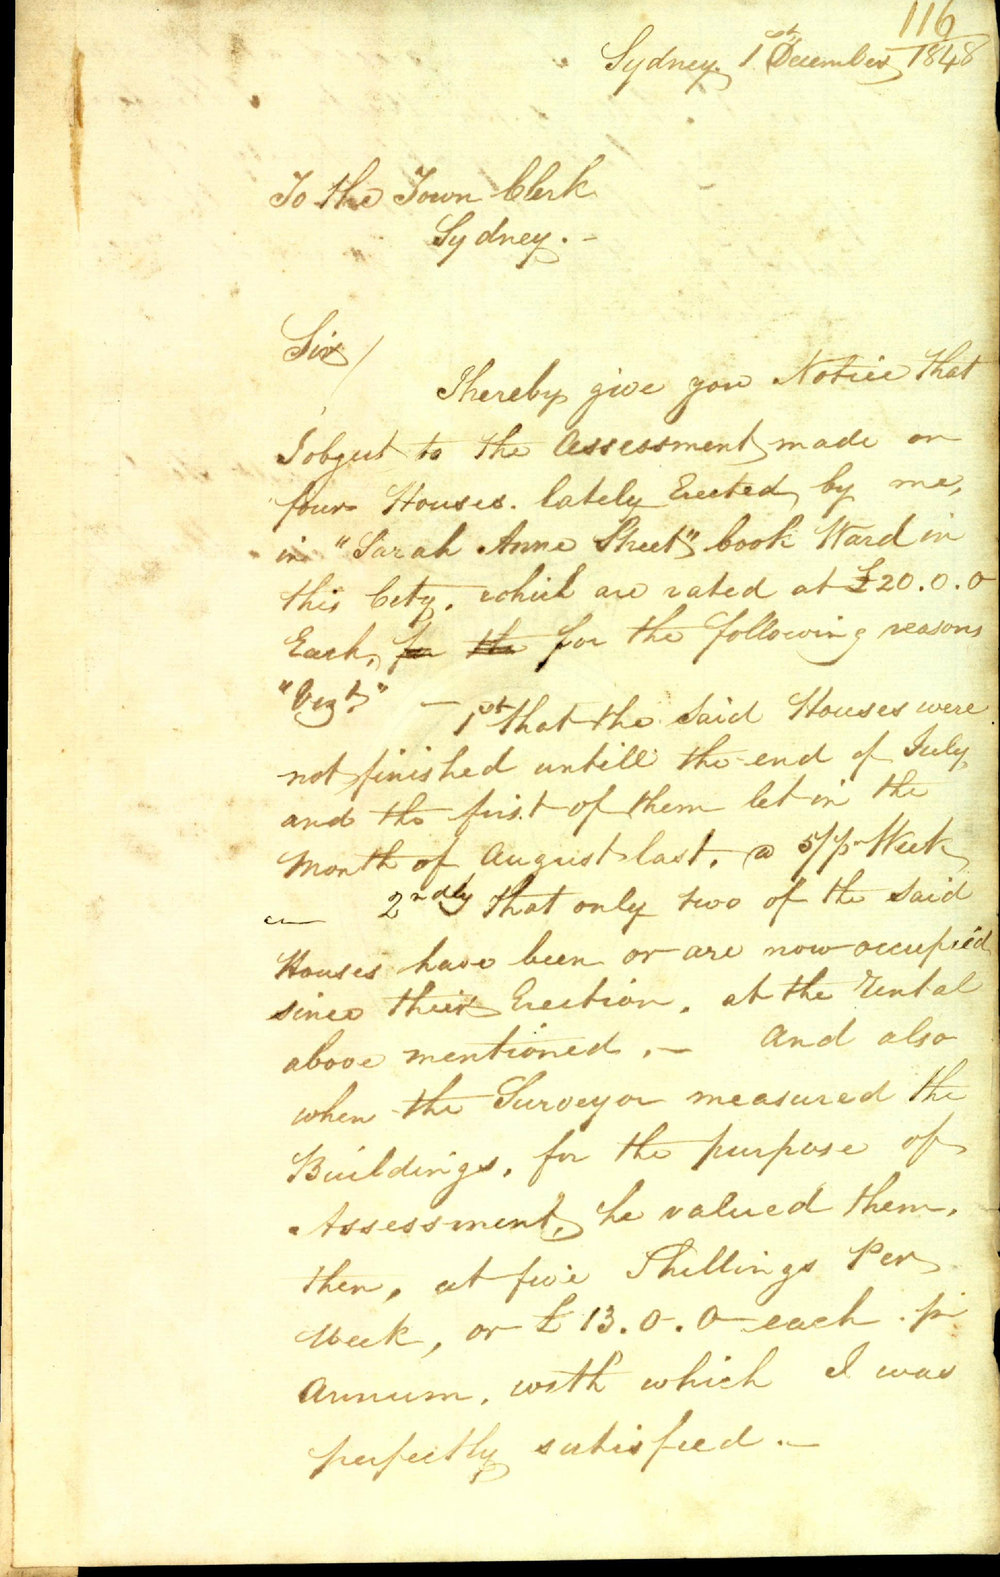 116
Sydney 1st December 1848
To the Town Clerk
Sydney. -
Sir /
I hereby give you Notice that
I object to the Assessment made on
four Houses. lately Erected by me,
in "Sarah Anne Street" Cook Ward in
this City. which are rated at £20.0.0
Each, for the for the following reasons
"Vizt." - 1st that the Said Houses were
not finished untill the end of July
and the first of them let in the
Month of August last. @ 5/ pr Week
2ndly that only two of the Said
Houses have been or are now occupied
since their Erection. at the Rental
above mentioned. - And also
when the Surveyor measured the
Buildings. for the purpose of
Assessment, he valued them.
then, at five Shillings Per
Week, or £13.0.0 each. pr
Annum. with which I was
perfectly satisfied. -